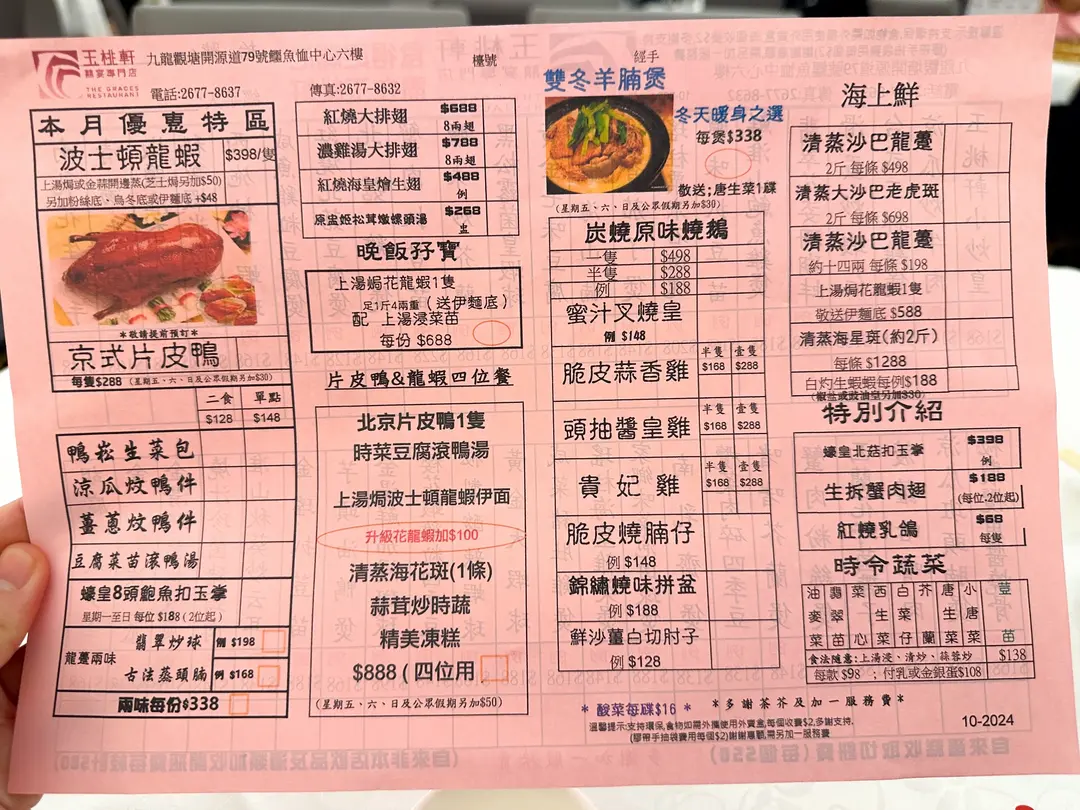 玉桃軒
囍宴專門店
THE GRACES
RESTAURANT
九龍觀塘開源道79號鱷魚恤中心六樓
電話:2677-8637
傳真:2677-8632
檯號
經手
本月優惠特區
波士頓龍蝦 $398/隻
上湯焗或金蒜開邊蒸(芝士焗另加$50)
另加粉絲底、烏冬底或伊麵底 +$48
*敬請提前預訂*
京式片皮鴨
每隻$288 (星期五、六、日及公眾假期另加$30)
二食 單點
$128 $148
鴨崧生菜包
涼瓜炆鴨件
薑蔥炆鴨件
豆腐菜苗滾鴨湯
蠔皇8頭鮑魚扣玉掌
星期一至日 每位 $188 (2位起)
龍躉兩味
翡翠炒球 例 $198
古法蒸頭腩 例 $168
兩味每份$338
紅燒大排翅 $688
8兩翅
濃雞湯大排翅 $788
8兩翅
紅燒海皇燴生翅 $488
例
原盅姬松茸燉螺頭湯 $268
盅
晚飯孖寶
上湯焗花龍蝦1隻
足1斤4兩重(送伊麵底)
配 上湯浸菜苗
每份 $688
片皮鴨&龍蝦四位餐
北京片皮鴨1隻
時菜豆腐滾鴨湯
上湯焗波士頓龍蝦伊面
升級花龍蝦加$100
清蒸海花斑(1條)
蒜茸炒時蔬
精美凍糕
$888 (四位用
(星期五、六、日及公眾假期另加$50)
雙冬羊腩煲
冬天暖身之選
每煲$338
敬送;唐生菜1碟
(星期五、六、日及公眾假期另加$30)
炭燒原味燒鵝
一隻 $498
半隻 $288
例 $188
蜜汁叉燒皇
例 $148
脆皮蒜香雞
半隻 壹隻
$168 $288
頭抽醬皇雞
半隻 壹隻
$168 $288
貴妃雞
半隻 壹隻
$168 $288
脆皮燒腩仔
例 $148
錦繡燒味拼盆
例 $188
鮮沙薑白切肘子
例 $128
* 酸菜每碟$16 *
*多謝茶芥及加一服務費*
溫馨提示:支持環保,食物如需外攜使用外賣盒,每個收費$2,多謝支持.
(膠帶手抽袋費用每個$2)謝謝惠顧,需另加一服務費
10-2024
海上鮮
清蒸沙巴龍躉
2斤 每條 $498
清蒸大沙巴老虎斑
2斤 每條 $698
清蒸沙巴龍躉
約十四兩 每條 $198
上湯焗花龍蝦1隻
敬送伊麵底 $588
清蒸海星斑(約2斤)
每條 $1288
白灼生蝦蝦每例$188
(椒鹽或豉油皇另加$30)
特別介紹
蠔皇北菇扣玉掌 $398
例
生拆蟹肉翅 $188
(每位.2位起)
紅燒乳鴿 $68
每隻
時令蔬菜
油麥菜
翡翠苗
菜心
西生菜
白菜仔
芥蘭
唐生菜
小唐菜
荳苗
食法隨意:上湯浸、清炒、蒜蓉炒 $138
每款 $98 ;付乳或金銀蛋$108